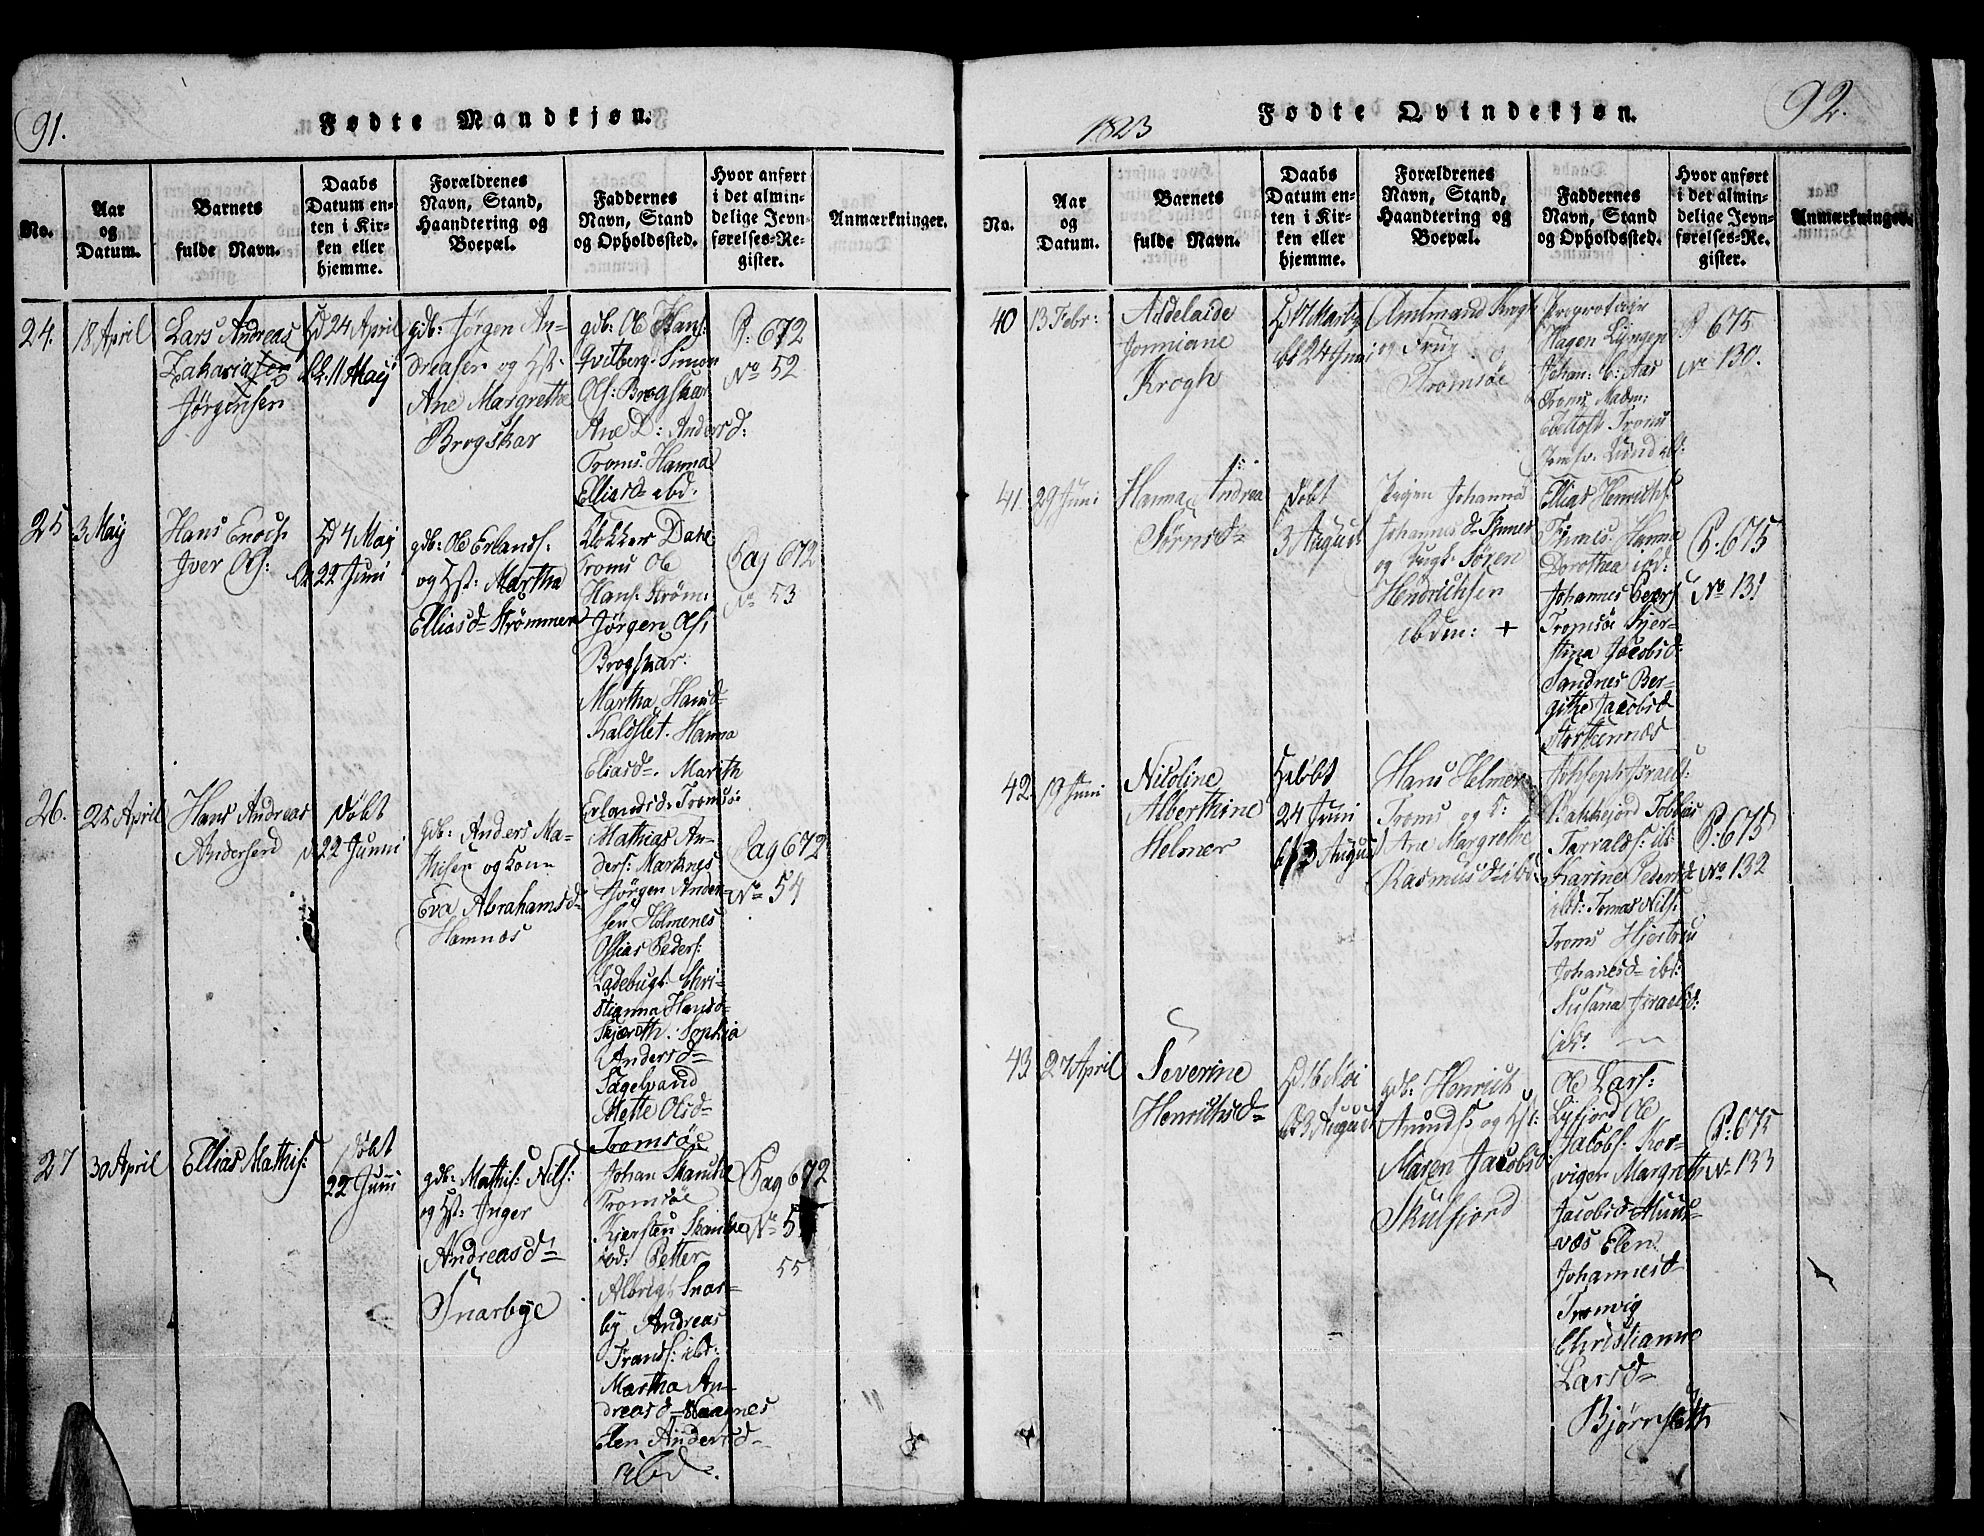 91.
Fødte Mandkjøn.
No.
Aar
og
Datum.
Barnets
fulde Navn.
Daabs
Datum en-
ten i Kir-
ken eller
hjemme.
Forældrenes
Navn, Stand,
Haandtering og
Boepæl.
Faddernes
Navn, Stand
og Opholdssted.
Hvor anført
i det almin-
delige Jevn-
førelses-Re-
gister.
Anmærkninger.
24.
18 April
Lars Andreas
Zakariasen
Jørgensen
Hd 24 April
11 Maÿ
gdb: Jørgen An-
dreasen og Hst:
Ane Margrethe
Brogskar
gdb: Ole Hans:
Qvitberg. Simon
Ols: Brogskar
Ane D: Andersd:
Troms. Hanna
Elliasd- ibd:
P: 672
No 52
25
3 Maÿ
Hans Enoch
Iver Ols:
Hd 4 Maÿ
22 Juni
gdb: Ole Erlands:
og Hst: Martha
Elliasd- Strømmen
Klokker Dahl
Troms Ole
Hans: Strøm:
Jørgen Ols:
Brogskar:
Martha Hansd-
Kaldslet. Hanna
Eliasd-. Marith
Erlandsd- Tromsøe
Pag 672
No 53
26.
22 April
Hans Andreas
Andersen
Døbt
22 Junni
gdb: Anders Ma-
thisen og Kone
Eva Abrahamsd-
Hamnæs
Mathias An-
ders: Marknes
Jørgen Ander-
sen Holmenes
Ossias Peders:
Ladebugt. Chri-
stianna Hansd-
Skjæreth. Sophia
Andersd-
Tagelvand
Mette Olsd-
Tromsøe
Pag 672
No 54
27
30 April
Ellias Mathis:
Døbt
22 Juni
gdb: Mathis: Nils:
og Hst: Inger
Andreasd-
Snarbye
Johan Skancke
Tromsøe
Kjersten Skancke
ibd: Petter
Albrigt: Snar-
by Andreas
Frands: ibd:
Martha An-
dreasd- Naagnes
Elen Andersd-
ibd.
Pag 672
No 5
55
1823
Fødte Qvindekjøn.
92.
No.
Aar
og
Datum.
Barnets
fulde Navn.
Daabs
Datum en-
ten i Kir-
ken eller
hjemme.
Forældrenes
Navn, Stand,
Haandtering og
Boepæl.
Faddernes
Navn, Stand
og Opholdssted.
Hvor anført
i det almin-
delige Jevn-
førelses-Re-
gister.
Anmærkninger.
40
13 Febr:
Addelaide
Jonniane
Krogh
24 Juni
Amtmand Krogh
og Frue
Tromsøe
Proprietair
Hagen Lyngen
Johan: C: Aas
Troms Madm:
Ebeltoft Troms
Jomfr. Lund ibd:
P. 675
No 130.
41.
29 Juni
Hanna Andrea
Sørensd-
Døbt
3 August
Pigen Johanna
Johannesd- Finnes
og Ungk: Søren
Hendrichsen
ibdm: +
Ellias Henrichs:
Finnes Hanna
Dorothea ibd:
Johannes Peers:
Tromsøe Kjer-
stina Jacobsd:
Sandnes Ber-
githe Jacobsd
Storstennæs
P: 675
No 131
42.
19 Juni
Nicoline
Alberthine
Helmer
Hdøbt
24 Juni
3 August
Hans Helmer
Troms og K:
Ane Margrethe
Rasmusd- ibd:
Johseph Israels:
Bakkejord Tobbias
Tarralds: ibd:
Karine Petersd-
ibd: Tomas Nils:
Troms Hjertru
Johanesd- ibd:
Susana Israelsd:
ibd:
P: 675
No 132
43.
27 April
Severine
Henrichsd-
Hd 16 Mai
3 August
gdb: Henrich
Amunds og Hst:
Maren Jacobsd:
Skulfjord
Ole Lars:
Lyfjord Ole
Jacobs: Kor-
vigen Margreth
Jacobsd Muus-
væs Elen
Johannesd
Tromvig
Christianne
Larsd-
Bjørnsleth
P: 675
No 133